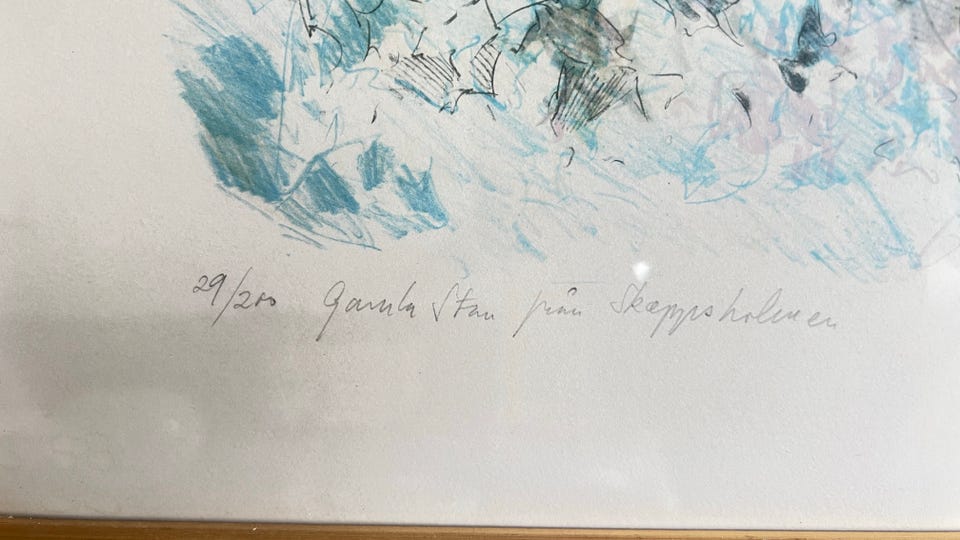 29/200 Gamla Stan från Skeppsholmen